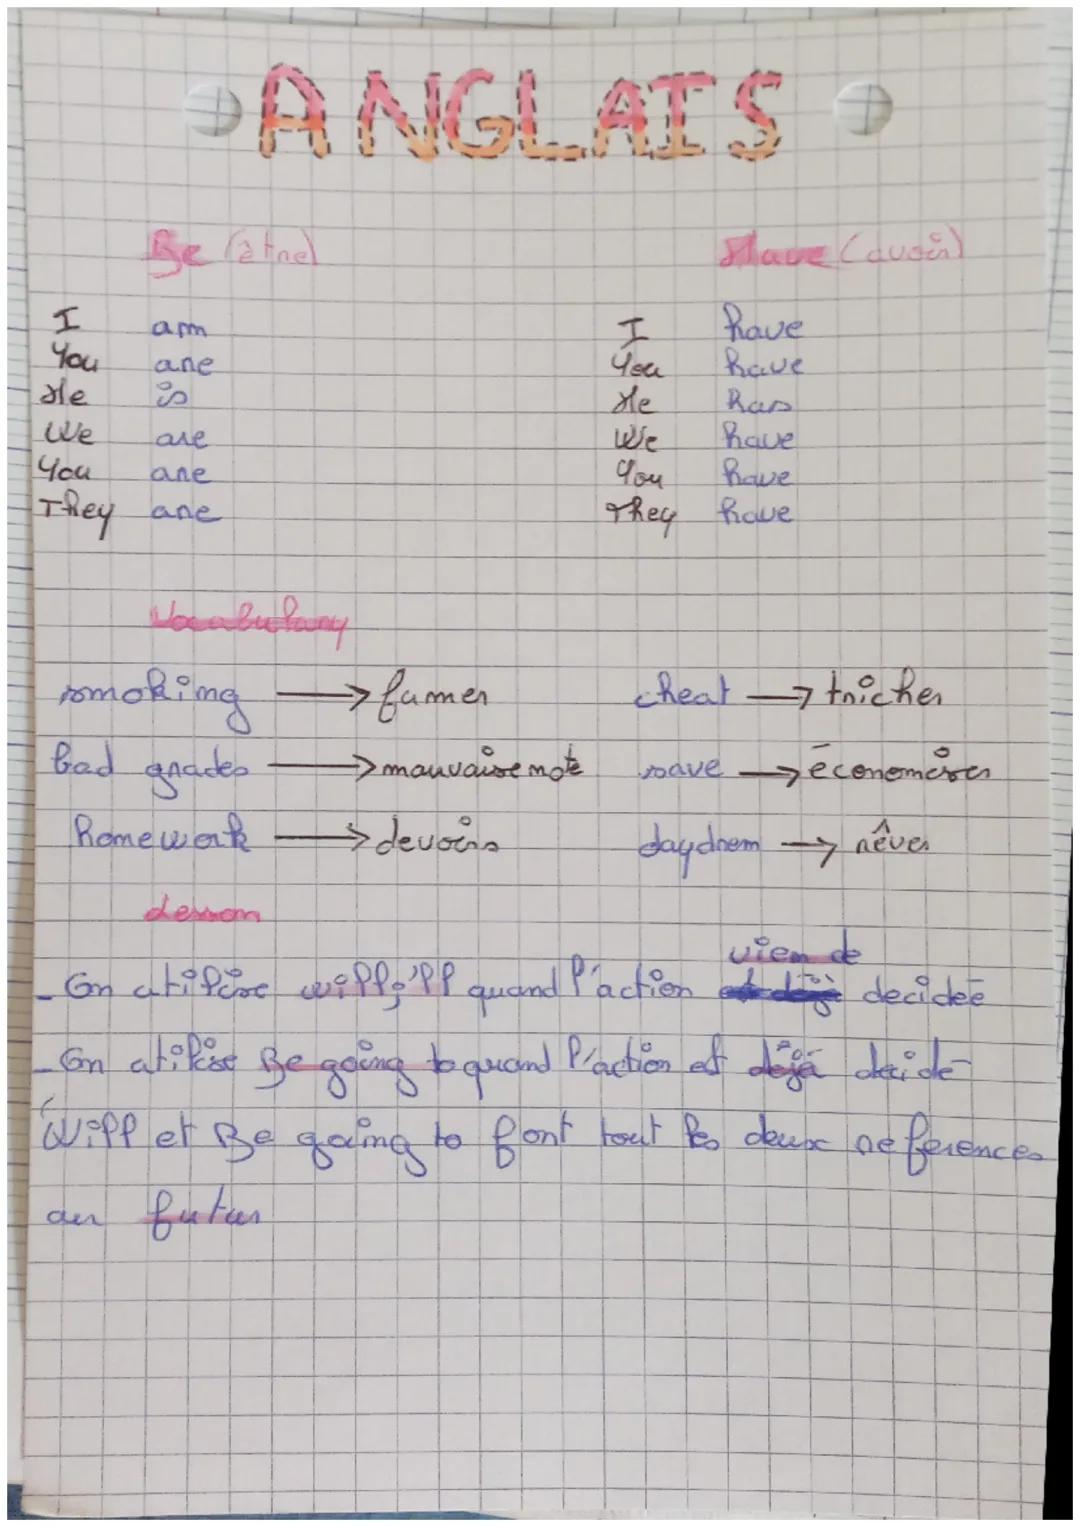 ANGLAIS
Be (être) Have (avoir)
I am I have
You are You have
He is He has
We are We have
You are You have
They are They have
Vocabulary
smoking → fumer cheat → tricher
bad grades → mauvaise note save → économiser
homework → devoirs daydrem → rêver
Lesson
vien de
- On utilise will; 'll quand l'action est déjà decidée
- On utilise Be going to quand l'action et déjà decidé
Will et Be going to font tout les deux références
au futur